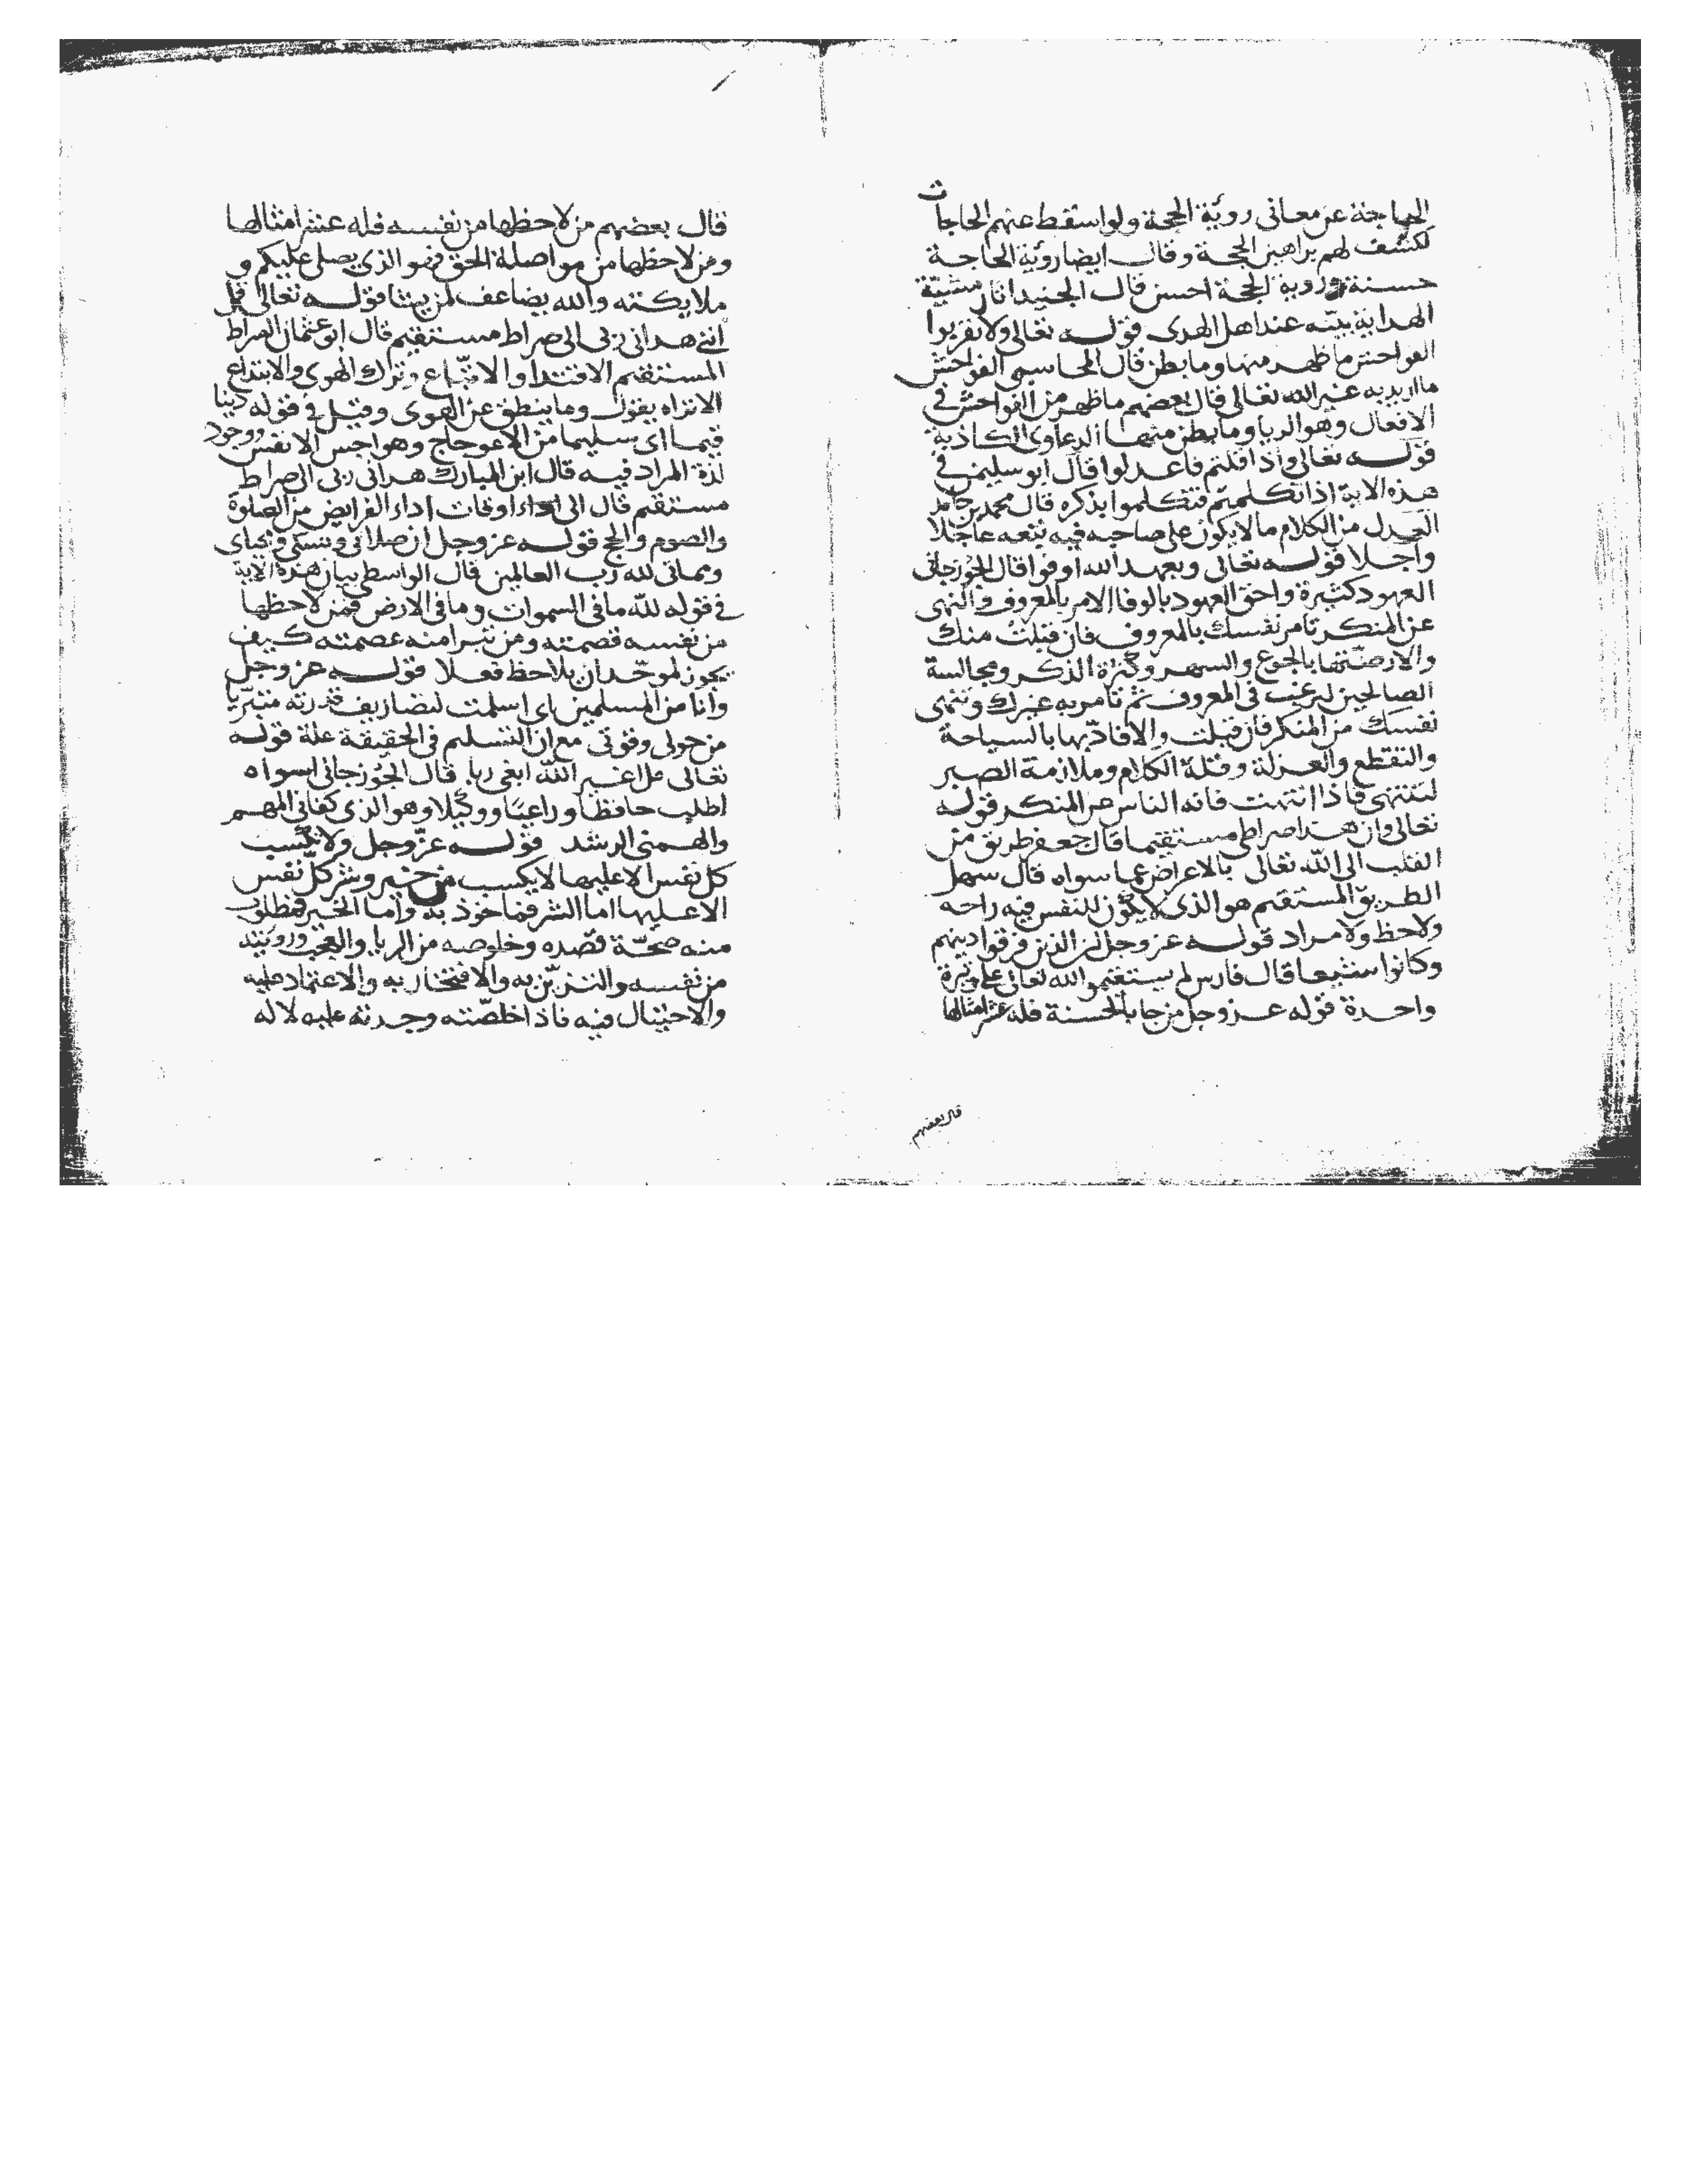 الحاجة عن معانى روية الحجة ولو اسقط عنهم الحاجات
لكشف لهم براهين الحجة وقال ايضا روية الحاجة
حسنة وروية الحجة احسن قال الجنيد اثار مشيئة
الهداية بينه عند اهل الهدى قوله تعالى ولا تقربوا
الفواحش ما ظهر منها وما بطن قال المحاسبى الفواحش
ما اريد به غير الله تعالى قال بعضهم ما ظهر من الفواحش فى
الافعال وهو الريا وما بطن منها الدعاوى الكاذبة
قوله تعالى واذا قلتم فاعدلوا قال ابو سليمن فى
هذه الاية اذا تكلمتم فتكلموا بذكره قال محمد بن حامد
العدل من الكلام ما لا يكون على صاحبه فيه تبعه عاجلا
واجلا قوله تعالى وبعهد الله اوفوا قال الجوزجانى
العهود كثيرة واحق العهود بالوفا الامر بالمعروف والنهى
عن المنكر تامر نفسك بالمعروف فان قبلت منك
والا رضتها بالجوع والسهر وكثرة الذكر ومجالسة
الصالحين لترغب فى المعروف ثم تامر به غيرك وتنهى
نفسك من المنكر فان قبلت والا فادبها بالسياحة
والتقطع والعزلة وقلة الكلام وملازمة الصبر
لتنتهى فاذا انتهت فانه الناس عن المنكر قوله
تعالى وان هذا صراطى مستقيما قال جعفر طريق من
القلب الى الله تعالى بالاعراض عما سواه قال سهل
الطريق المستقيم هو الذى لا يكون للنفس فيه راحه
ولا حظ ولا مراد قوله عز وجل ان الذين فرقوا دينهم
وكانوا شيعا قال فارس لم يستقيموا الله تعالى على وتيرة
واحدة قوله عز وجل من جا بالحسنة فله عشر امثالها
قال بعضهم
قال بعضهم من لاحظها من نفسه فله عشر امثالها
ومن لاحظها من مواصلة الحق فهو الذى يصلى عليكم و
ملايكته والله يضاعف لمن يشا قوله تعالى قل
اننى هدانى ربى الى صراط مستقيم قال ابو عثمان الصراط
المستقيم الاقتدا والاتباع وترك الهوى والابتداع
الا تراه يقول وما ينطق عن الهوى وقيل فى قوله دينا
قيما اى سليما من الاعوجاج وهواجس الانفس ووجود
لذة المراد فيه قال ابن المبارك هدانى ربى الى صراط
مستقيم قال الى اداء اوقات اداء الفرايض من الصلوة
والصوم والحج قوله عز وجل ان صلاتى ونسكى ومحياى
ومماتى لله رب العالمين قال الواسطى بيان هذه الاية
فى قوله لله ما فى السموات وما فى الارض فمن لاحظها
من نفسه قصمته ومن تبرا منه عصمته كيف
يجوز لموحد ان يلاحظ فعلا قوله عز وجل
وانا من المسلمين اى اسلمت لتصاريف قدرته متبريا
من حولى وقوتى مع ان التسليم فى الحقيقة علة قوله
تعالى قل اغير الله ابغى ربا قال الجوزجانى اسواه
اطلب حافظا وراعيا ووكيلا وهو الذى كفانى المهم
والهمنى الرشد قوله عز وجل ولا تكسب
كل نفس الا عليها لا يكسب من خير وشر كل نفس
الا عليها اما الشر فماخوذ به واما الخير فمطلوب
منه صحة قصده وخلوصه من الريا والعجب ورويته
من نفسه والتزين به والافتخار به والاعتماد عليه
والاحتيال فيه فاذا خلصته وجدته عليه لا له